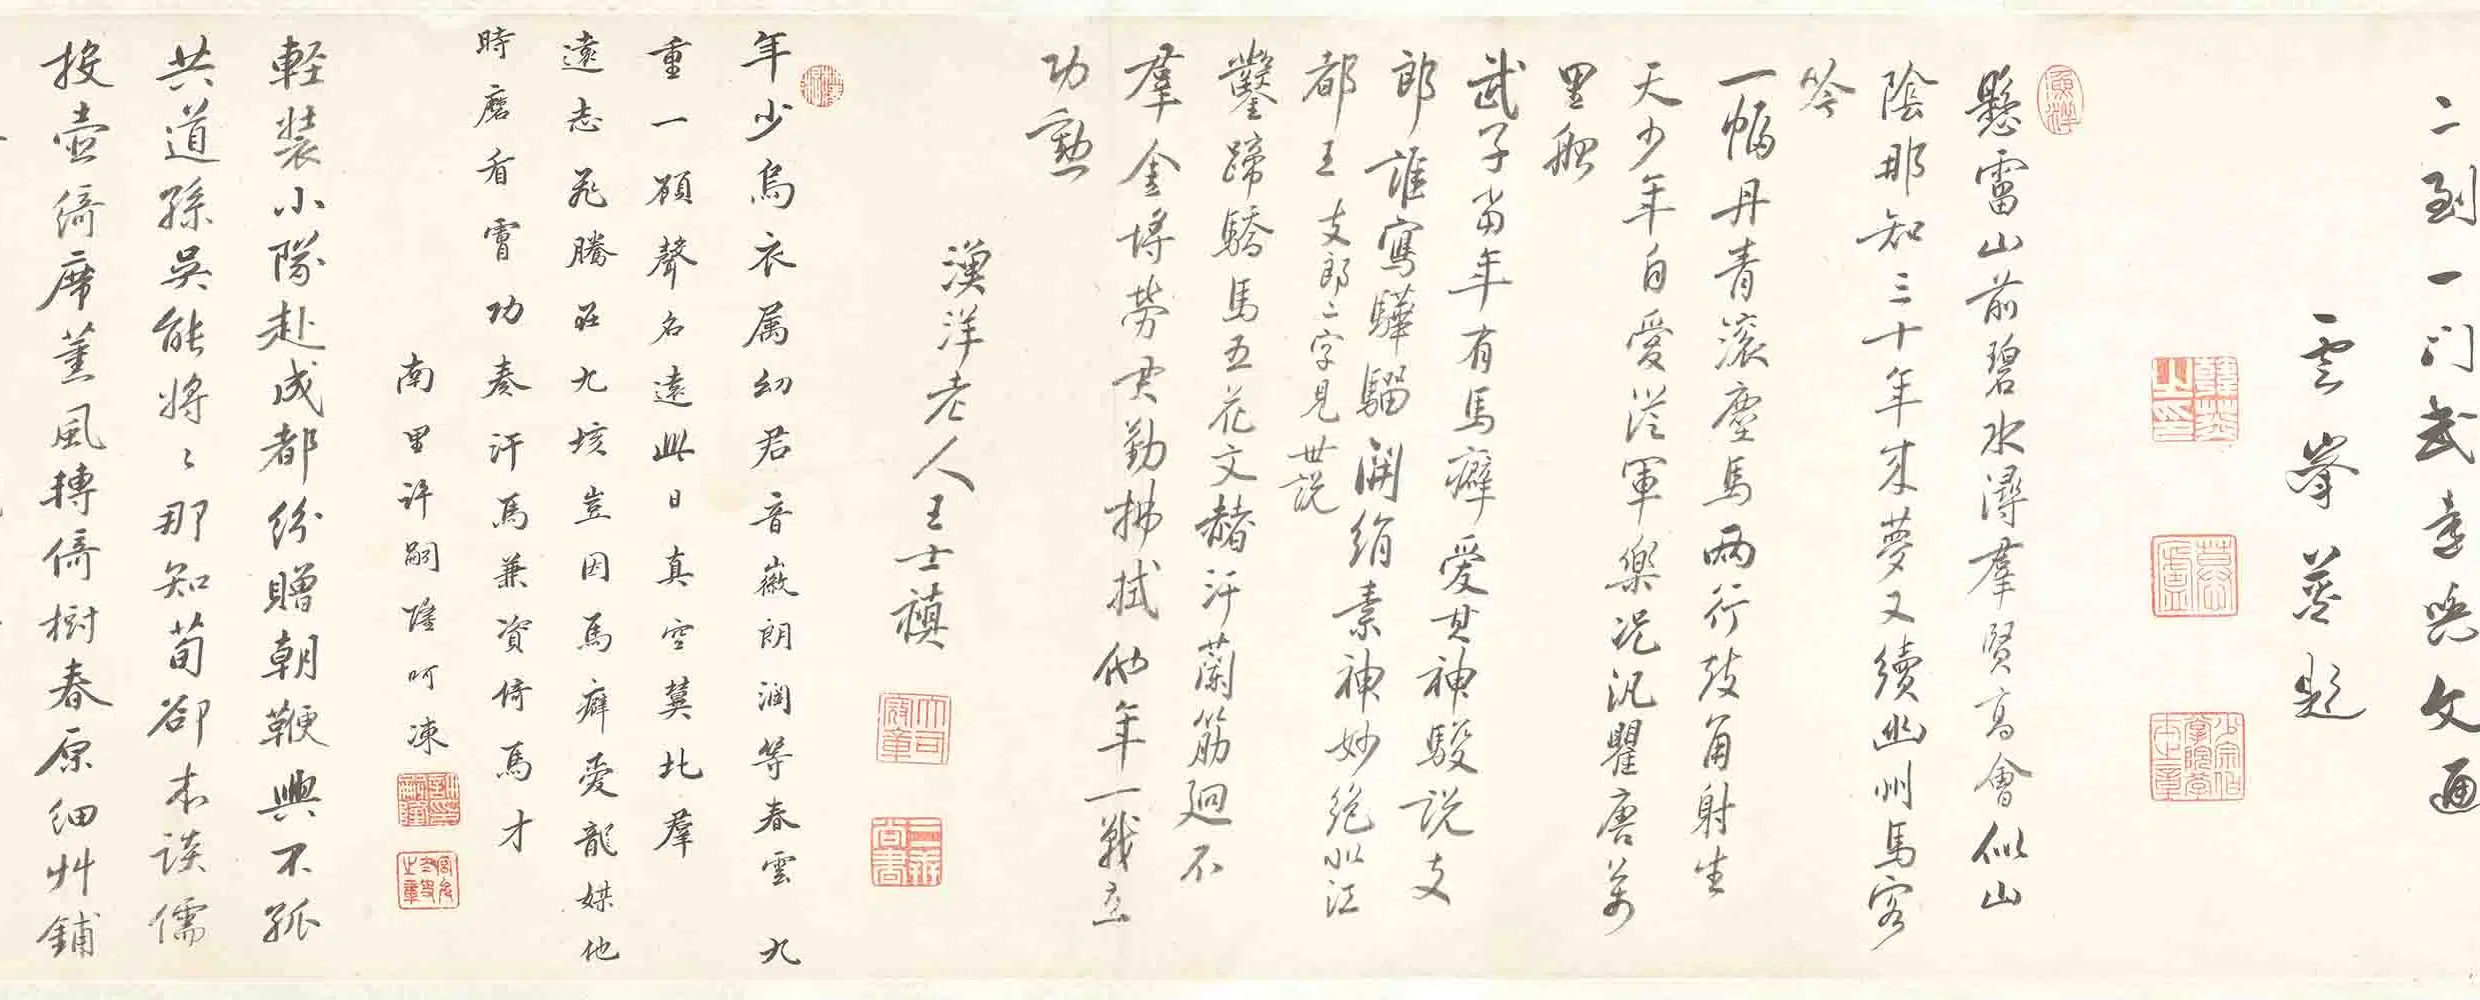 二到一门武達與文通
雲峯菼題
懸雷山前碧水潯羣賢高會似山
陰那知三十年來夢又續幽州馬客
吟
一幅丹青滚塵馬兩行鼓角射生
天少年自愛從軍樂況汎瞿唐萬
里船
武子當年有馬癖愛其神駿説支
郎誰寫驊騮開絹素神妙絶似江
都王支郎二字見世説
鑿蹄驕馬五花文赭汗蘭筋迥不
羣金埒勞君勤拂拭他年一戰立
功勲
漁洋老人王士禛
年少烏衣属幼君音徽朗潤等春雲九
重一顧聲名遠此日真空冀北羣
遠志飛騰在九垓豈因馬癖愛龍媒他
時磨看霄功奏汗馬兼資倚馬才
南里許嗣隆呵凍
軽装小隊赴成都紛贈朝鞭興不孤
共道孫吳能將將那知荀郤本談儒
投壺綺席薫風轉倚樹春原細艸鋪